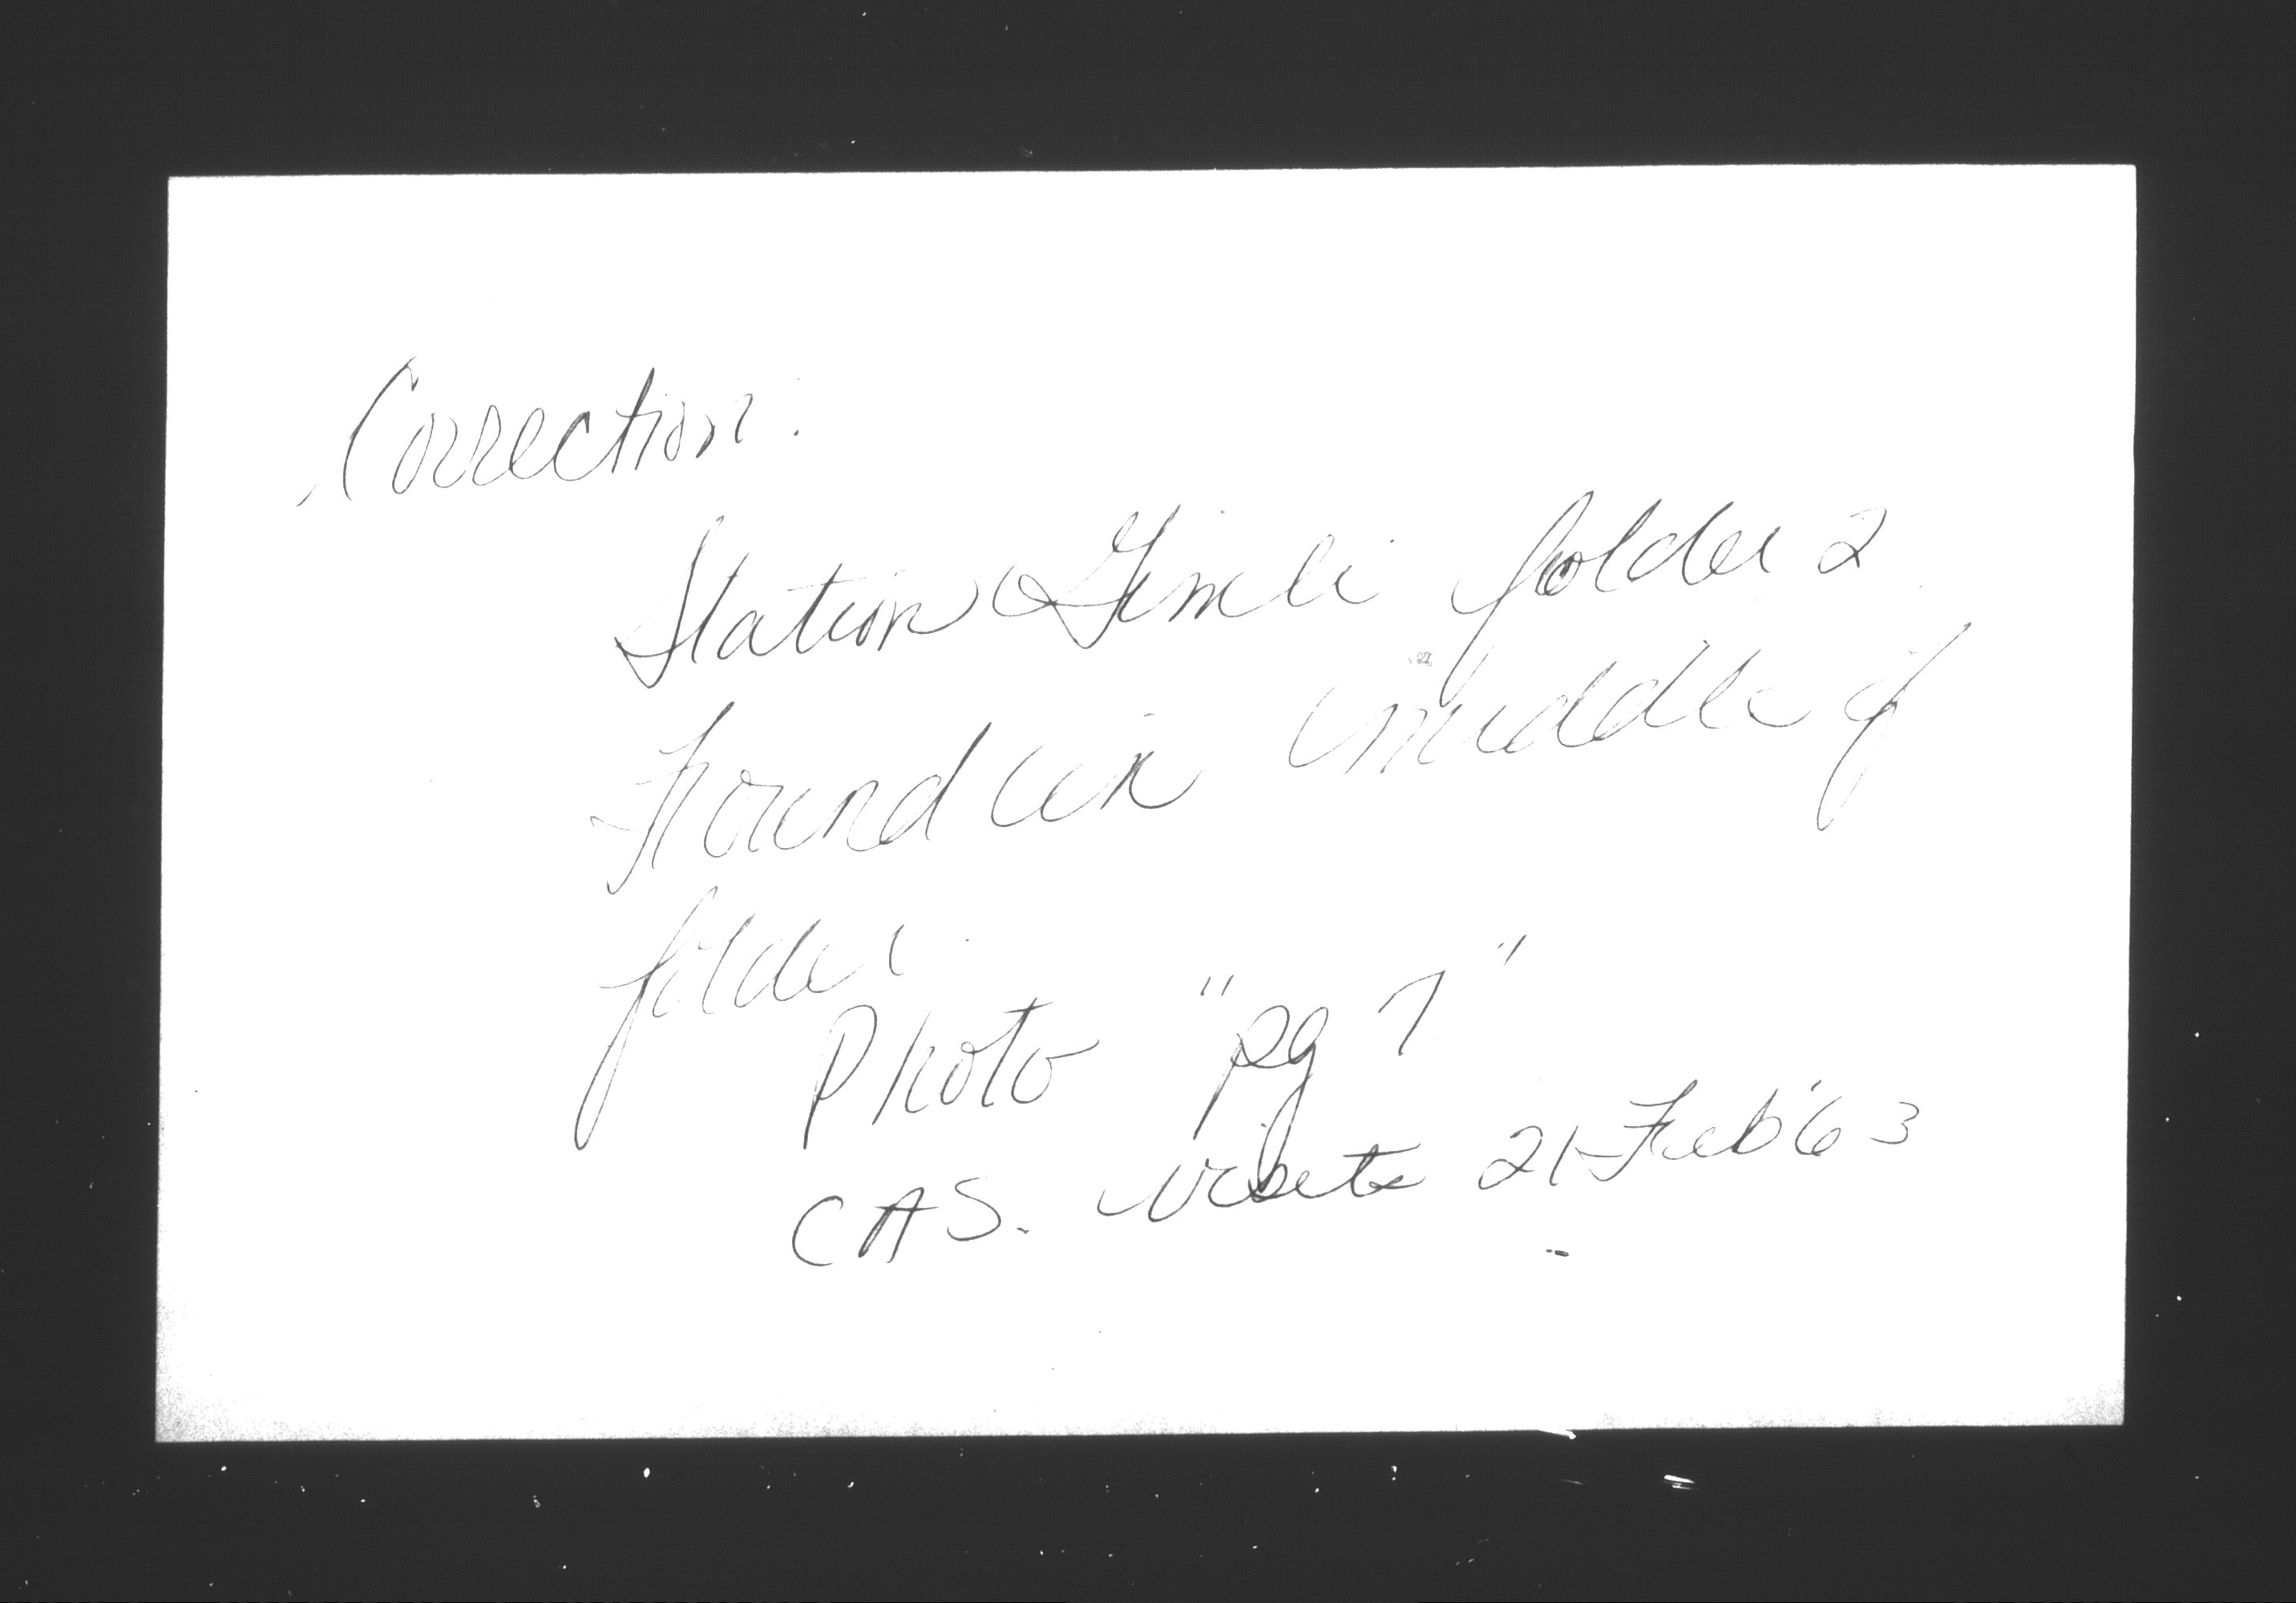 Correction:
Station Gimli folder 2
Found in middle of
folder.
Photo "pg 7"
CAS. visit 21 Feb '63